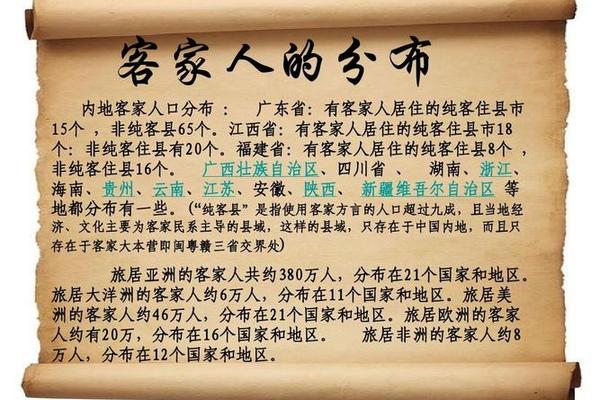 客家人的分布
内地客家人口分布 ： 广东省：有客家人居住的纯客住县市
15个 ，非纯客县65个。江西省：有客家人居住的纯客住县市18
个：非纯客县有20个。福建省：有客家人居住的纯客住县8个 ，
非纯客县16个。 广西壮族自治区、四川省 、 湖南、浙江、
海南、贵州、云南、江苏、安徽、陕西、 新疆维吾尔自治区 等
地都分布有一些。(“纯客县”是指使用客家方言的人口超过九成，且当地经
济、文化主要为客家民系主导的县域，这样的县域，只存在于中国内地，而且只
存在于客家大本营即闽粤赣三省交界处)
旅居亚洲的客家人共约380万人，分布在21个国家和地区。
旅居大洋洲的客家人约6万人，分布在11个国家和地区。旅居美
洲的客家人约46万人，分布在21个国家和地区。旅居欧洲的客家
人约有20万，分布在16个国家和地区。 旅居非洲的客家人约8
万人，分布在12个国家和地区。